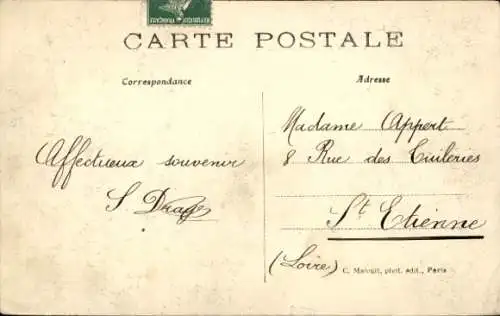 CARTE POSTALE
Correspondance
Adresse
Affectueux souvenir
Madame Appert
8 Rue des Tuileries
St Etienne
(Loire)
C. Malcuit, phot. édit., Paris